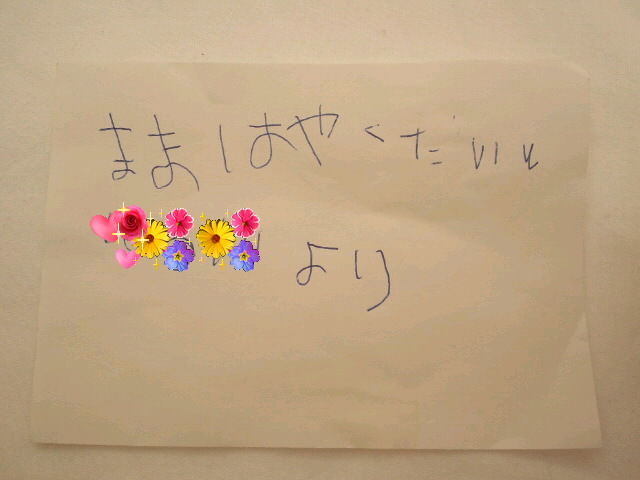 ままはやくたいい
より